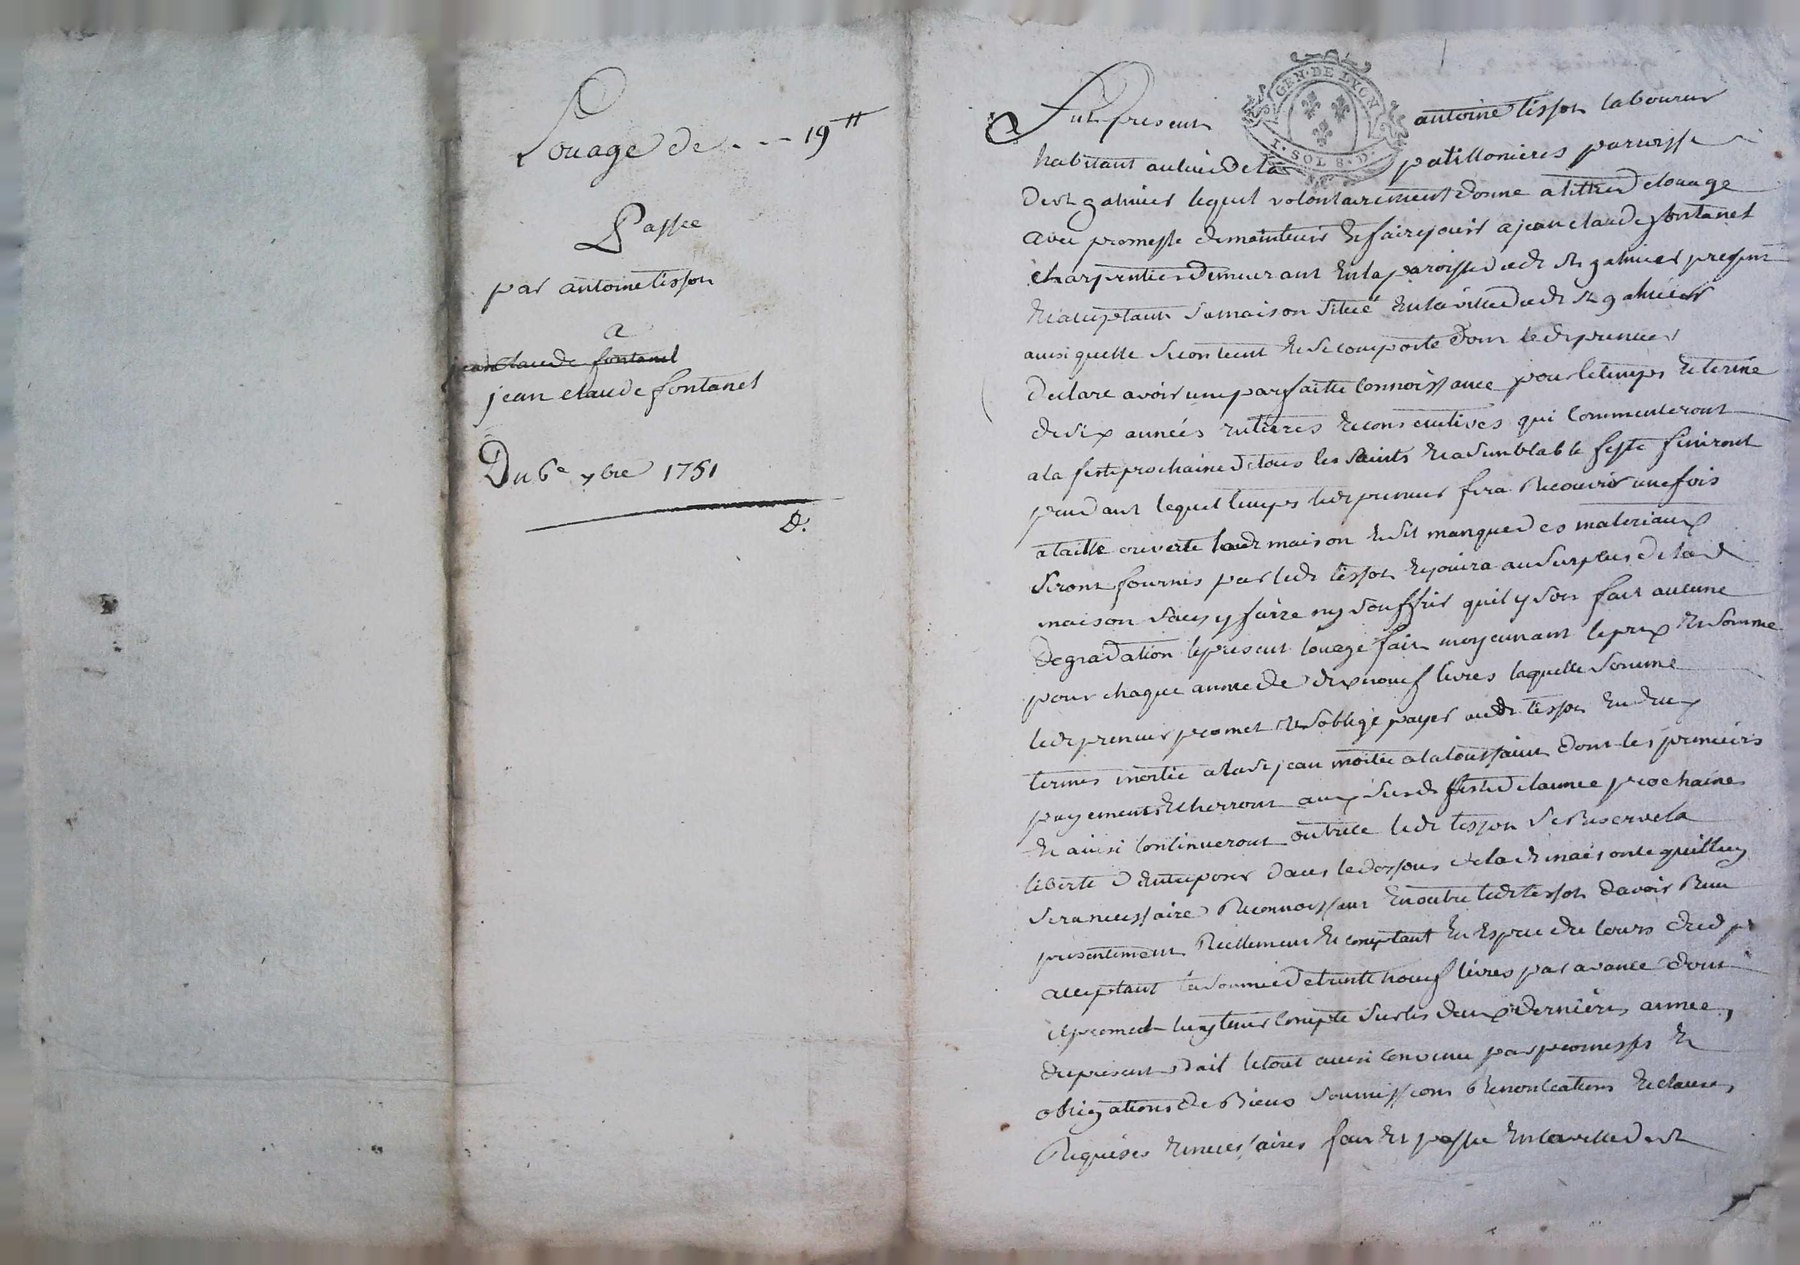 Louage de . . - 19tt
Passée
par antoine tisson
a
jean claude fontanel
jean claude fontanel
Du 6e 7bre 1751
D.
GEN · DE LYON
I · SOL 8 · D.
Fut present antoine tisson laboureur
habitant au lieu de la patillonieres parroisse
de st galmier lequel volontairement donne a tittre de louage
avec promesse de maintenir et faire jouir a jean claude fontanel
charpentier demeurant en la paroisse dud st galmier present
et acceptant sa maison situeé en la ville dud st galmier
ainsi quelle se contient et se comporte dont led preneur
declare avoir une parfaitte connoissance pour le temps et terme
de six années entieres et consecutives qui commenceront
a la feste prochaine de tous les saints et a semblable feste finiront
pendant lequel temps led preneur fera recouvrir une fois
a taille ouverte lad maison et sil manque des materiaux
seront fournis par led tisson et jouira au surplus de lad
maison sans y faire ny souffrir quil y soit fait aucune
degradation le present louage fait moyennant le prix et somme
pour chaque année de dixneuf livres laquelle somme
led preneur promet et soblige payer aud tisson en deux
termes moitié a la st jean moitié a la toussaint dont les premiers
payements echerront aux susd feste de lannee prochaine
et ainsi continueront outre led tisson se reserve la
liberté dentreposer dans le dessous de lad maison ce quil luy
sera necessaire reconnoissant en outre led tisson davoir reçu
presentement reellement et comptant en espece de cours dud pr
acceptant la somme de trente neuf livres par avance dont
il promet luy tenir compte sur les deux dernieres annees
du present bail le tout ainsi convenu par promesses et
obligations de biens soumissions renonciations et clauses
requises et necessaires fait et passé en la ville de st